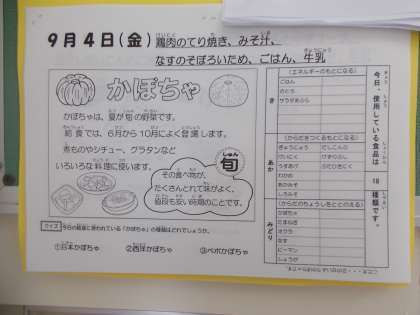 9月4日(金) 鶏肉のてり焼き、みそ汁、
なすのそぼろいため、ごはん、牛乳
かぼちゃ
かぼちゃは、夏が旬の野菜です。
給食では、6月から10月によく登場します。
煮ものやシチュー、グラタンなど
いろいろな料理に使います。
旬
その食べ物が、
たくさんとれて味がよく、
値段も安い時期のことです。
クイズ 今日の給食に使われている「かぼちゃ」の種類はどれでしょうか。
①日本かぼちゃ ②西洋かぼちゃ ③ペポかぼちゃ
今日、使用している食品は 18 種類です。
き
(エネルギーのもとになる)
ごはん
さとう
サラダあぶら
あか
(からだをつくるもとになる)
ぎゅうにゅう
けいにく
わかめ
あかみそ
しろみそ
みどり
(からだのちょうしをととのえる)
かぼちゃ
たまねぎ
オクラ
なす
ピーマン
しょうが